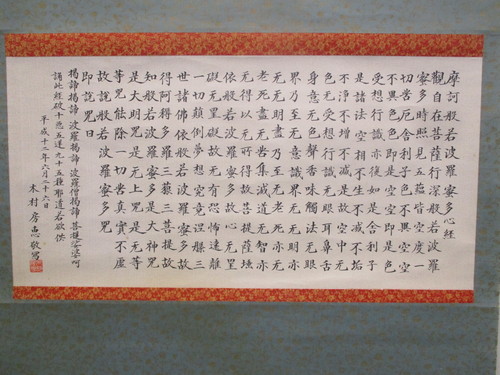 摩訶般若波羅蜜多心經
觀自在菩薩行深般若波羅
蜜多時照見五蘊皆空度一
切苦厄舎利子色不異空空
不異色色即是空空即是色
受想行識亦復如是舎利子
是諸法空相不生不滅不垢
不淨不增不減是故空中无
色无受想行識无眼耳鼻舌
身意无色聲香味觸法无眼
界乃至无意識界无无明亦
无无明盡乃至无老死亦无
老死盡无苦集滅道无智亦
无得以无所得故菩提薩埵
依般若波羅蜜多故心无罣
礙无罣礙故无有恐怖遠離
一切顛倒夢想究竟涅槃三
世諸佛依般若波羅蜜多故
得阿耨多羅三藐三菩提故
知般若波羅蜜多是大神咒
是大明咒是无上咒是无等
等咒能除一切苦真實不虛
故説般若波羅蜜多咒
即説咒曰
揭諦揭諦 波羅揭諦 波羅僧揭諦 菩提娑婆呵
誦此經破十惡五逆九十五種邪道若欲供
平成十二年六月二十六日
木村 敬寫